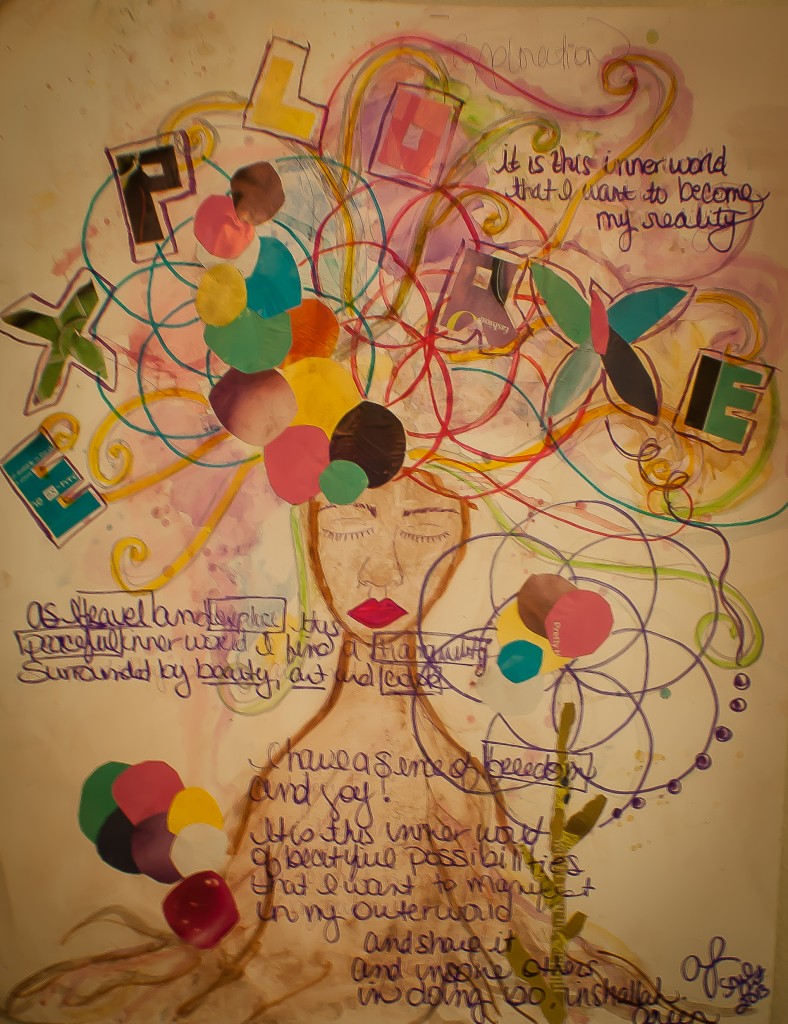 EXPLORE
it is this inner world
that I want to become
my reality
As I travel and explore this
peaceful inner world I find a tranquility
Surrounded by beauty, art and color
I have a sense of freedom
and joy!
It is this inner world
of beautiful possibilities
that I want to manifest
in my outerworld
and share it
and inspire others
in doing so, inshallah.
Ameen